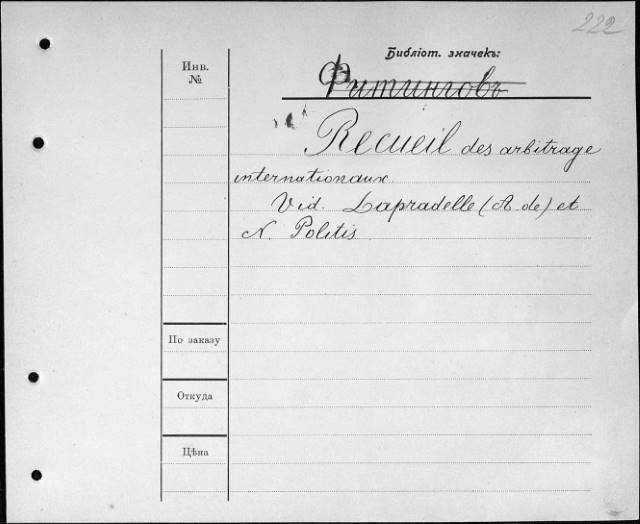 222
Библіот. значекъ:
Инв.
№
Фитинговъ
Recueil des arbitrage
internationaux.
Vid. Lapradelle (A. de) et
N. Politis
По заказу
Откуда
Цѣна